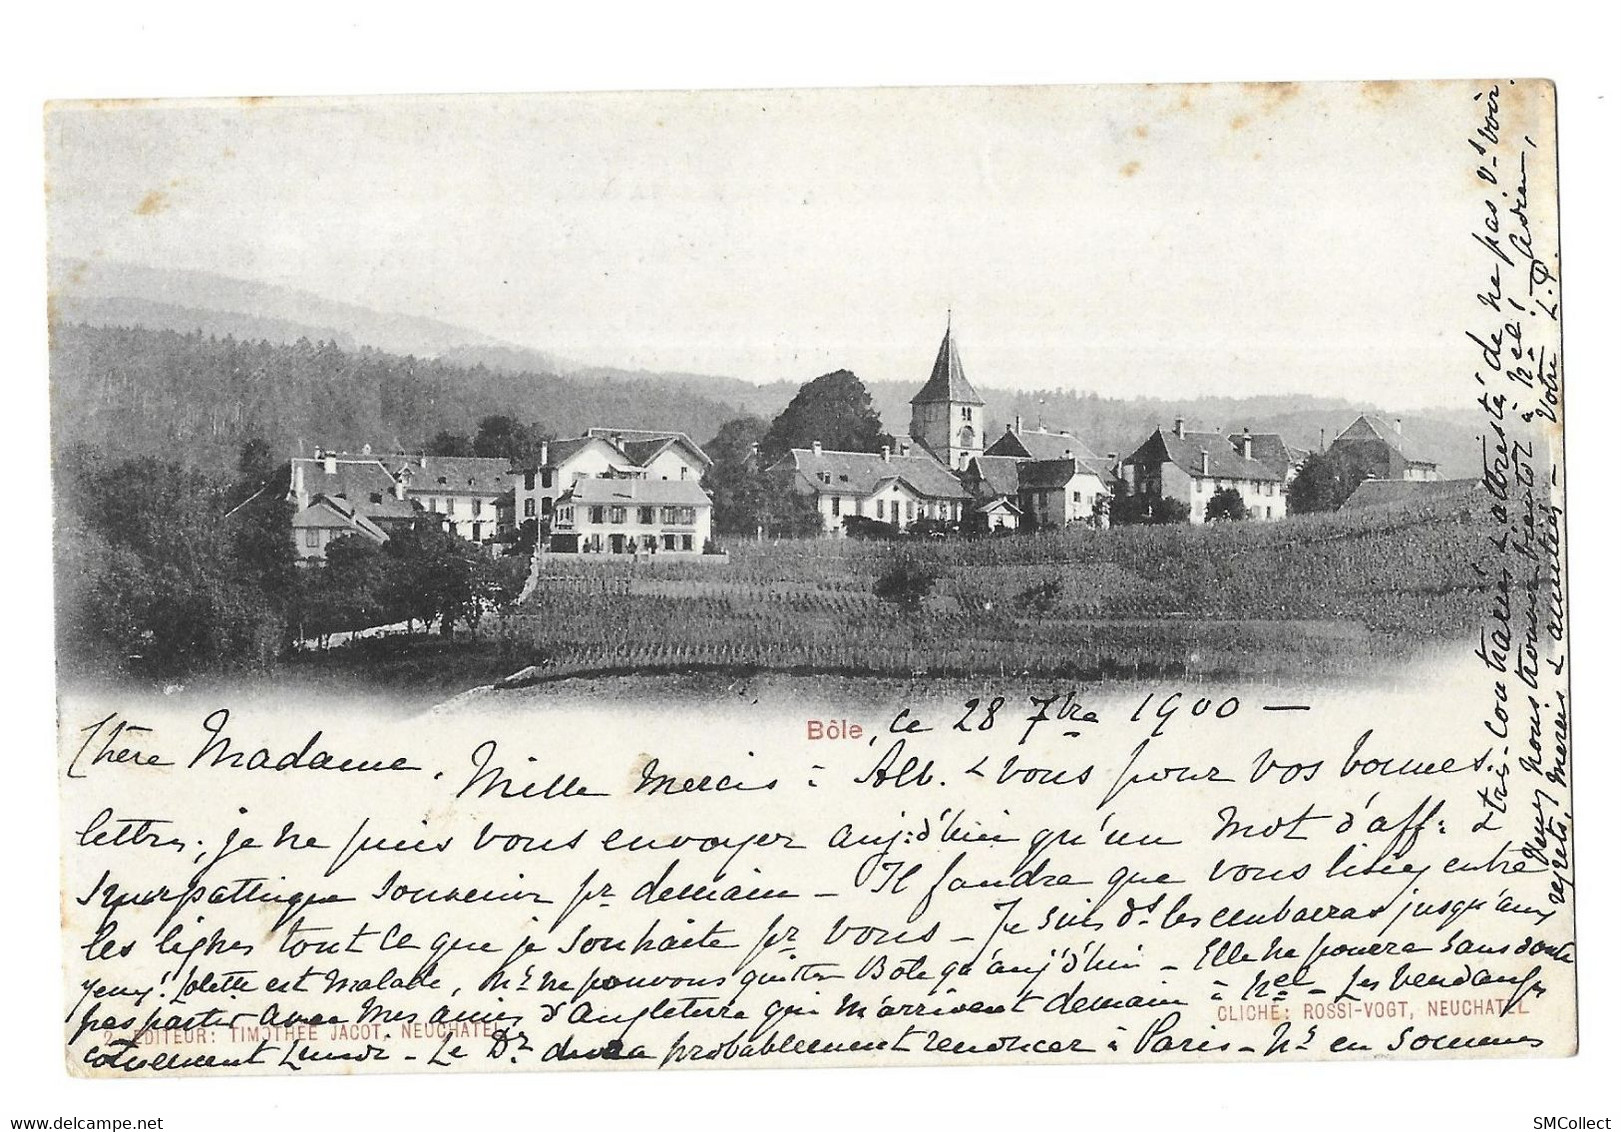 Bôle, ce 28 7bre 1900 —
Chère Madame,
Mille mercis à Alb. & vous pour vos bonnes
lettres; je ne puis vous envoyer auj: d'hui qu'un mot d'aff: &
sympathique souvenir pr demain – Il faudra que vous lisiez entre
les lignes tout ce que je souhaite pr vous – Je suis ds les embarras jusqu'aux
yeux! Colette est malade, ns ne pouvons quitter Bôle qu'auj'd'hui – Elle ne pourra sans doute
pas partir avec mes amies d'Angleterre qui m'arrivent demain à Nel – Les vendanges
commencent Lundi – Le Dr devra probablement renoncer à Paris – Ns en sommes
très-contrariés & attristés de ne pas vs voir.
Venez nous trouver bientôt à Nel! Adieu,
regrets, mercis & amitiés – Votre L.P.
2. EDITEUR: TIMOTHÉE JACOT, NEUCHATEL
CLICHÉ: ROSSI-VOGT, NEUCHATEL
SMCollect